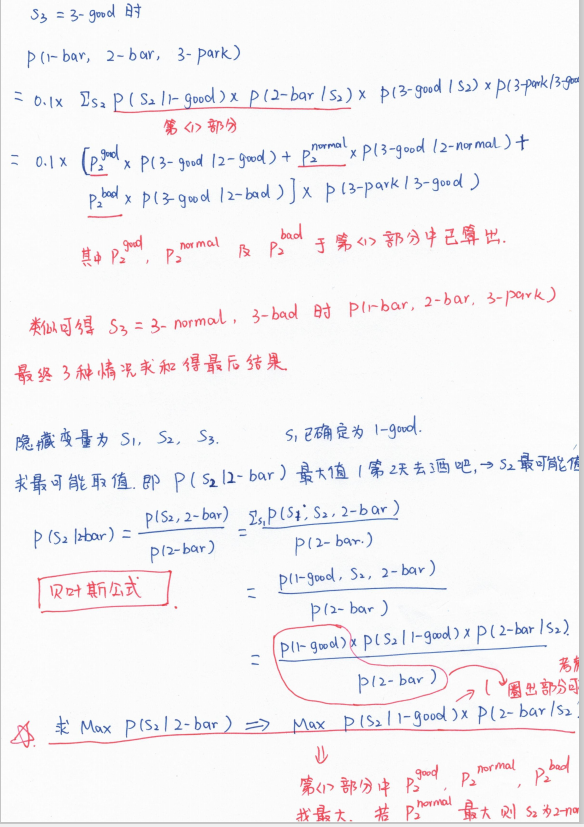 S₃ = 3-good 时
P(1-bar, 2-bar, 3-park)
= 0.1× Σs₂ P(S₂|1-good)× P(2-bar|S₂)× P(3-good|S₂)×P(3-park|3-goo
第<1>部分
= 0.1× [P₂^good × P(3-good|2-good) + P₂^normal × P(3-good|2-normal) +
P₂^bad × P(3-good|2-bad)]× P(3-park|3-good)
其中 P₂^good, P₂^normal 及 P₂^bad 于第<1>部分中已算出.
类似可得 S₃ = 3-normal, 3-bad 时 P(1-bar, 2-bar, 3-park)
最终3种情况求和得最后结果.
隐藏变量为 S₁, S₂, S₃. S₁已确定为1-good.
求最可能取值.即 P(S₂|2-bar) 最大值 (第2天去酒吧,→ S₂最可能值
P(S₂|2bar) = P(S₂, 2-bar) / P(2-bar) = Σs₁ P(S₁, S₂, 2-bar) / P(2-bar.)
贝叶斯公式.
= P(1-good, S₂, 2-bar) / P(2-bar)
= P(1-good)× P(S₂|1-good)× P(2-bar|S₂). / P(2-bar)
圈出部分可
求 Max P(S₂|2-bar) ⇒ Max P(S₂|1-good)× P(2-bar|S₂
⇓
第<1>部分中 P₂^good, P₂^normal, P₂^bad
找最大. 若 P₂^normal 最大则 S₂为2-nor